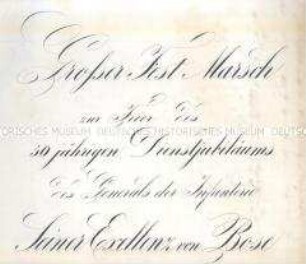 Großer Fest Marsch
zur Feier des
HISTORISCHES MUSEUM DEUTSCHES HISTORISCHES MUSEUM DEUTSCHES
50 jährigen Dienstjubiläums
des Generals der Infanterie
Seiner Exellenz von Bose